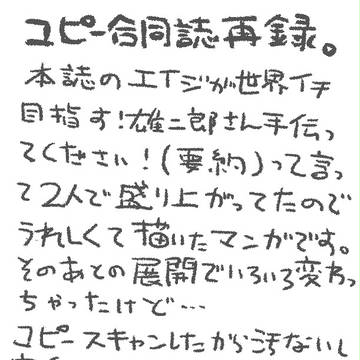 コピー合同誌再録。
本誌のエイジが世界イチ
目指す!雄二郎さん手伝っ
てください!(要約)って言っ
て2人で盛り上がってたので
うれしくて描いたマンガです。
そのあとの展開でいろいろ変わっ
ちゃったけど…
コピースキャンしたから汚ないし